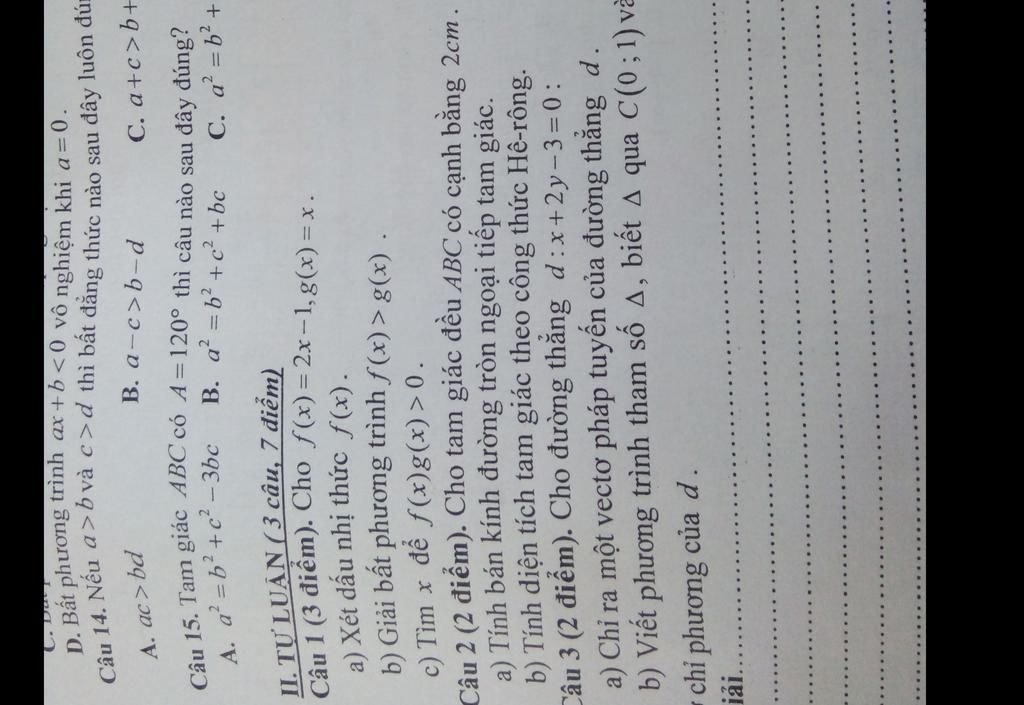 D. Bất phương trình ax + b < 0 vô nghiệm khi a = 0.
Câu 14. Nếu a > b và c > d thì bất đẳng thức nào sau đây luôn
A. ac > bd B. a − c > b − d C. a + c > b +
Câu 15. Tam giác ABC có A = 120° thì câu nào sau đây đúng?
A. a² = b² + c² − 3bc B. a² = b² + c² + bc C. a² = b² +
II. TỰ LUẬN ( 3 câu, 7 điểm)
Câu 1 (3 điểm). Cho f(x) = 2x − 1, g(x) = x.
a) Xét dấu nhị thức f(x).
b) Giải bất phương trình f(x) > g(x) .
c) Tìm x để f(x)g(x) > 0.
Câu 2 (2 điểm). Cho tam giác đều ABC có cạnh bằng 2cm.
a) Tính bán kính đường tròn ngoại tiếp tam giác.
b) Tính diện tích tam giác theo công thức Hê-rông.
Câu 3 (2 điểm). Cho đường thẳng d : x + 2y − 3 = 0 :
a) Chỉ ra một vectơ pháp tuyến của đường thẳng d .
b) Viết phương trình tham số Δ, biết Δ qua C(0 ; 1) và
chỉ phương của d .